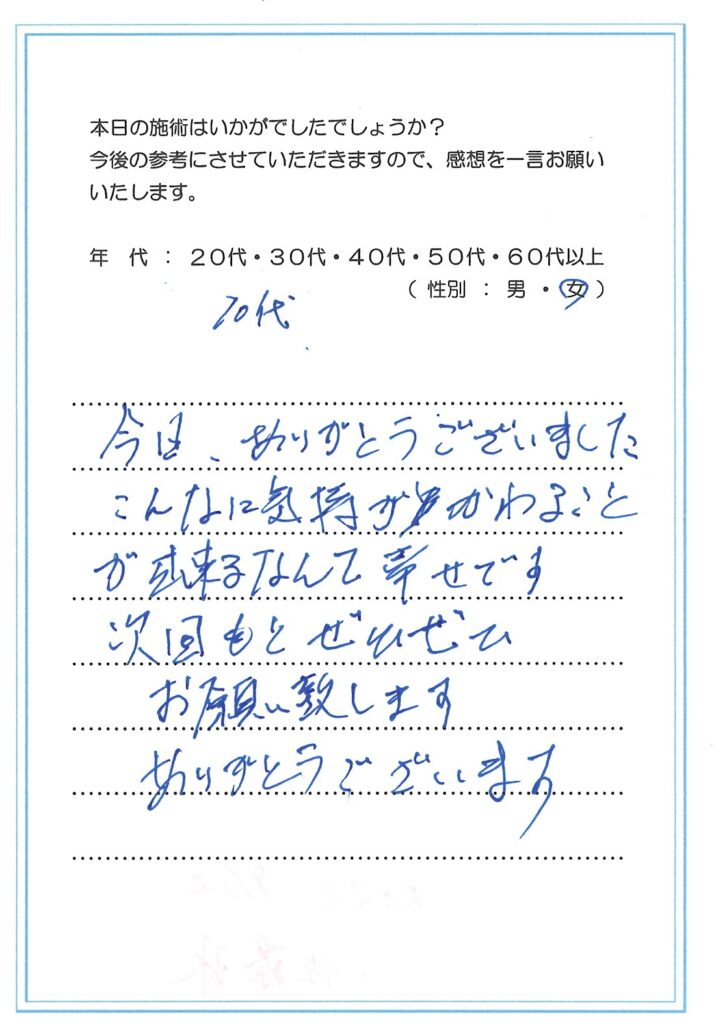 本日の施術はいかがでしたでしょうか？
今後の参考にさせていただきますので、感想を一言お願い
いたします。
年　代　：　２０代・３０代・４０代・５０代・６０代以上
（ 性別 ： 男 ・ 女 ）
70代
今日、ありがとうございました
こんなに気持がかわること
が出来るなんて幸せです
次回もと ぜひぜひ
お願い致します
ありがとうございます